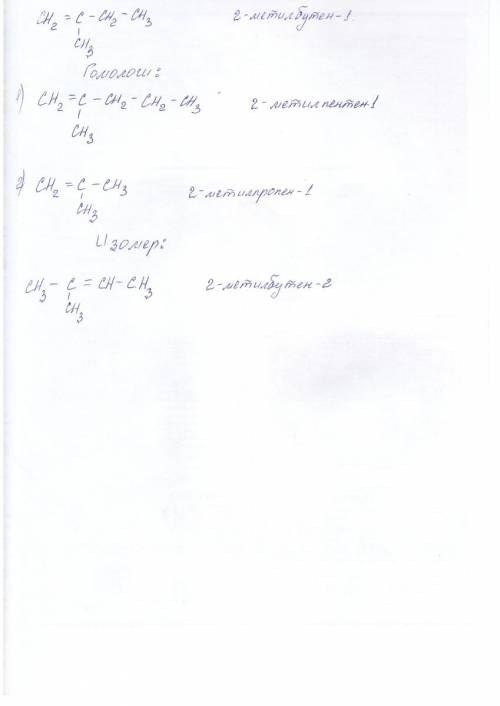 CH₂ = C – CH₂ – CH₃ 2-метилбутен-1
CH₃
Гомологи:
1) CH₂ = C – CH₂ – CH₂ – CH₃ 2-метилпентен1
CH₃
2) CH₂ = C – CH₃ 2-метилпропен-1
CH₃
Изомер:
CH₃ – C = CH – CH₃ 2-метилбутен-2
CH₃